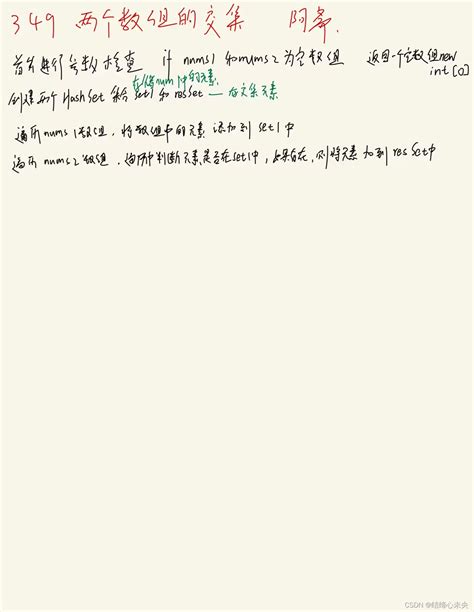 349 两个数组的交集 阿希.
首先进行参数检查 if nums1 和nums2 为空数组 返回一个空数组new int[0]
存储num1中的元素
创建两个HashSet 集合 set1 和 resSet — 存交集元素
遍历nums1数组,将数组中的元素添加到 set1中
遍历nums2数组,判断元素是否在set1中,如果存在,则将元素加到resSet中
CSDN @晴绪心未央